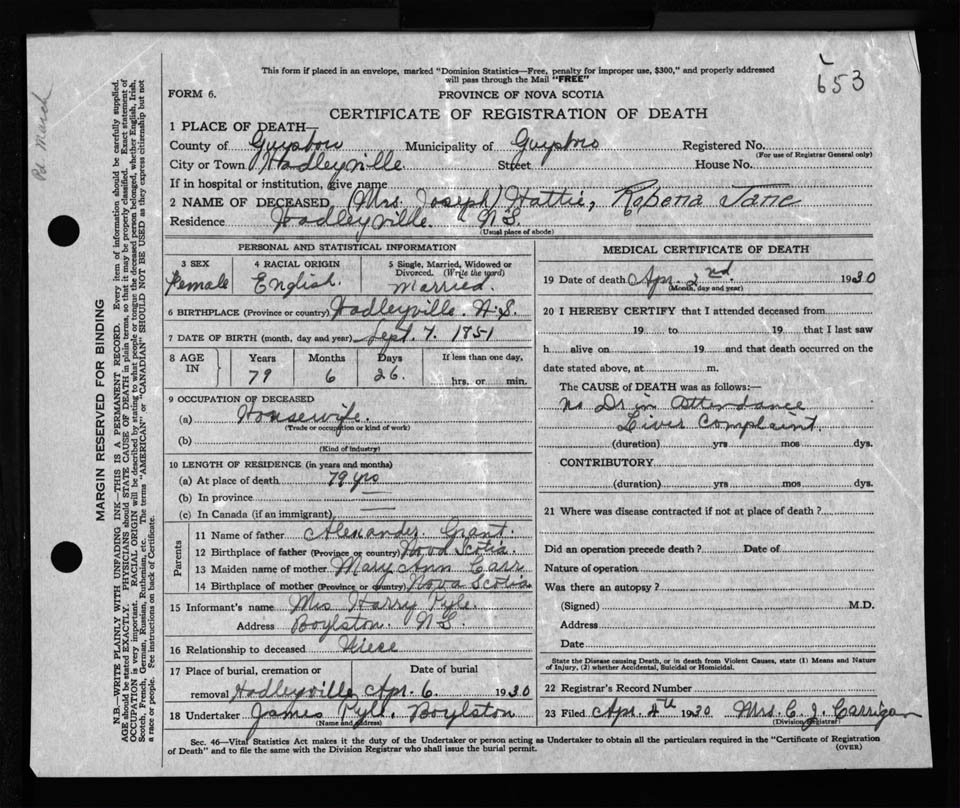 653
This form if placed in an envelope, marked "Dominion Statistics—Free, penalty for improper use, $300," and properly addressed
will pass through the Mail "FREE"
FORM 6.
PROVINCE OF NOVA SCOTIA
CERTIFICATE OF REGISTRATION OF DEATH
1 PLACE OF DEATH—
County of Guysboro Municipality of Guysboro Registered No.
(For use of Registrar General only)
City or Town Hadleyville Street House No.
If in hospital or institution, give name
2 NAME OF DECEASED (Mrs. Joseph) Hattie, Robena Jane
Residence Hadleyville. N.S.
(Usual place of abode)
PERSONAL AND STATISTICAL INFORMATION
3 SEX 4 RACIAL ORIGIN 5 Single, Married, Widowed or
Divorced. (Write the word)
Female English. Married.
6 BIRTHPLACE (Province or country) Hadleyville. N.S.
7 DATE OF BIRTH (month, day and year) Sept. 7. 1851
8 AGE IN Years Months Days If less than one day,
79 6 26. hrs. or min.
9 OCCUPATION OF DECEASED
(a) Housewife.
(Trade or occupation or kind of work)
(b)
(Kind of industry)
10 LENGTH OF RESIDENCE (in years and months)
(a) At place of death 79 yrs
(b) In province —
(c) In Canada (if an immigrant) —
Parents
11 Name of father Alexander Grant.
12 Birthplace of father (Province or country) Nova Scotia.
13 Maiden name of mother Mary Ann Carr
14 Birthplace of mother (Province or country) Nova Scotia
15 Informant's name Mrs Harry Pyle.
Address Boylston. N.S.
16 Relationship to deceased Niece
17 Place of burial, cremation or Date of burial
removal Hadleyville Apr. 6. 1930
18 Undertaker James Pyle. Boylston
(Name and address)
MEDICAL CERTIFICATE OF DEATH
19 Date of death Apr. 2nd. 1930
(Month, day and year)
20 I HEREBY CERTIFY that I attended deceased from
19 to 19 that I last saw
h alive on 19 and that death occurred on the
date stated above, at m.
The CAUSE of DEATH was as follows:—
No Dr in Attendance
Liver Complaint.
(duration) yrs mos dys.
CONTRIBUTORY
(duration) yrs mos dys.
21 Where was disease contracted if not at place of death?
Did an operation precede death? Date of
Nature of operation
Was there an autopsy?
(Signed) M.D.
Address
Date
State the Disease causing Death, or in death from Violent Causes, state (1) Means and Nature
of Injury, (2) whether Accidental, Suicidal or Homicidal.
22 Registrar's Record Number
23 Filed Apr. 4th 1930 Mrs. C. J. Carrigan
(Division Registrar)
Sec. 46—Vital Statistics Act makes it the duty of the Undertaker or person acting as Undertaker to obtain all the particulars required in the "Certificate of Registration
of Death" and to file the same with the Division Registrar who shall issue the burial permit.
(OVER)
MARGIN RESERVED FOR BINDING
N.B.—WRITE PLAINLY WITH UNFADING INK—THIS IS A PERMANENT RECORD. Every item of information should be carefully supplied.
AGE should be stated EXACTLY. PHYSICIANS should STATE CAUSE OF DEATH in plain terms, so that it may be properly classified. Exact statement of
OCCUPATION is very important. RACIAL ORIGIN will be described by stating to what people or tongue the deceased person belonged, whether English, Irish,
Scotch, French, German, Russian, Ruthenian, etc. The terms "AMERICAN" or "CANADIAN" SHOULD NOT BE USED as they express citizenship but not
a race or people. See instructions on back of Certificate.